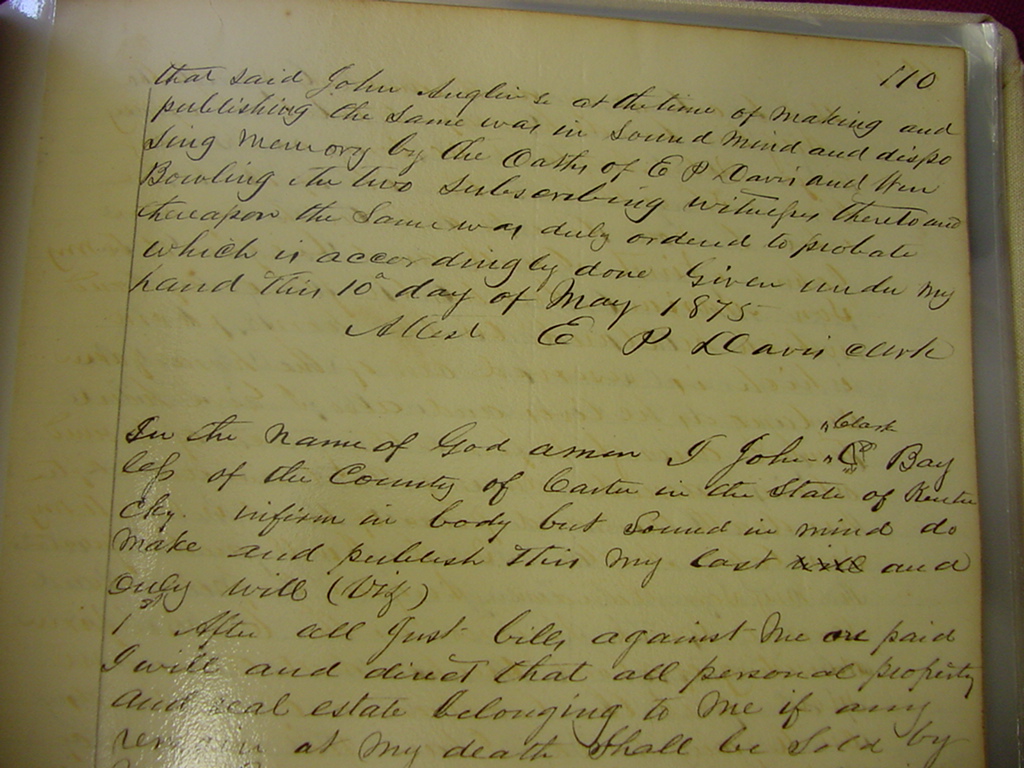 110
that said John Anglin at the time of making and
publishing the same was in sound mind and dispo
sing memory by the Oaths of E P Davis and
Bowling the two subscribing witnesses thereto and
thereupon the same was duly ordered to probate
which is accordingly done Given under my
hand this 10 day of May 1875
Attest E P Davis clerk
Clark
In the name of God amin I John Bay
less of the County of Carter in the State of Kentu
cky infirm in body but sound in mind do
make and publish this my last and
Only will (Viz)
1 After all just bills against me are paid
I will and direct that all personal property
and real estate belonging to me if any
remain at my death shall be sold by